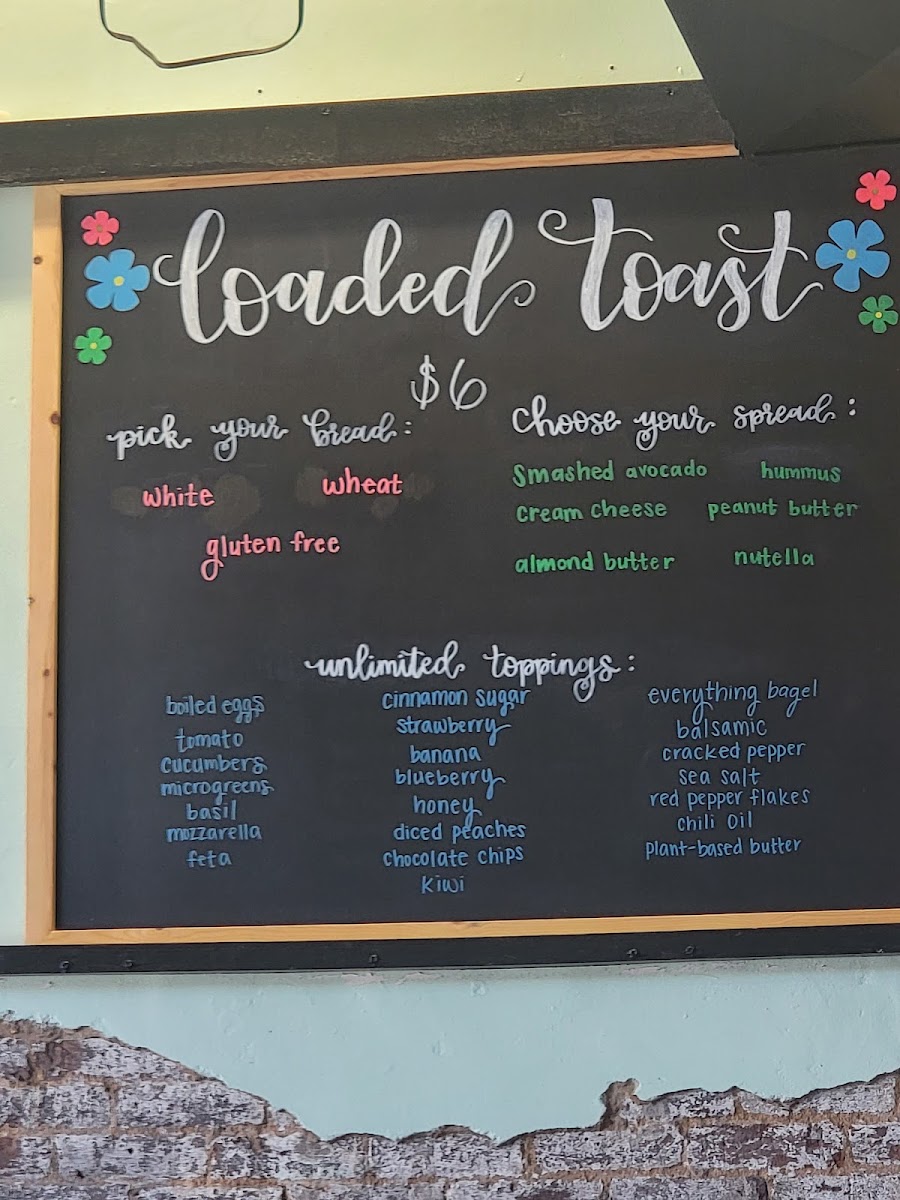 loaded toast
$6
pick your bread:
white wheat
gluten free
choose your spread:
Smashed avocado hummus
cream cheese peanut butter
almond butter nutella
unlimited toppings:
boiled eggs
tomato
cucumbers
microgreens
basil
mozzarella
feta
cinnamon sugar
strawberry
banana
blueberry
honey
diced peaches
chocolate chips
kiwi
everything bagel
balsamic
cracked pepper
sea salt
red pepper flakes
chili oil
plant-based butter